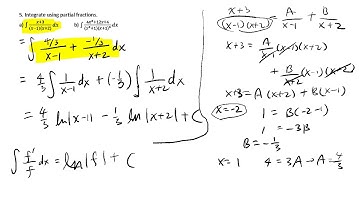 5. Integrate using partial fractions.
a) ∫ x+3/((x-1)(x+2)) dx b) ∫ 4x²+12x+4/((x²+1)(x²+2)) dx
∫ (4/3)/(x-1) + (-1/3)/(x+2) dx
= 4/3 ∫ 1/(x-1) dx + (-1/3) ∫ 1/(x+2) dx
= 4/3 ln|x-1| - 1/3 ln|x+2| + C
∫ f'/f dx = ln|f| + C
x+3/((x-1)(x+2)) = A/(x-1) + B/(x+2)
x+3 = A/(x-1) (x-1)(x+2)
+ B/(x+2) (x-1)(x+2)
x+3 = A(x+2) + B(x-1)
x=-2 1 = B(-2-1)
1 = -3B
B = -1/3
x=1 4 = 3A → A = 4/3